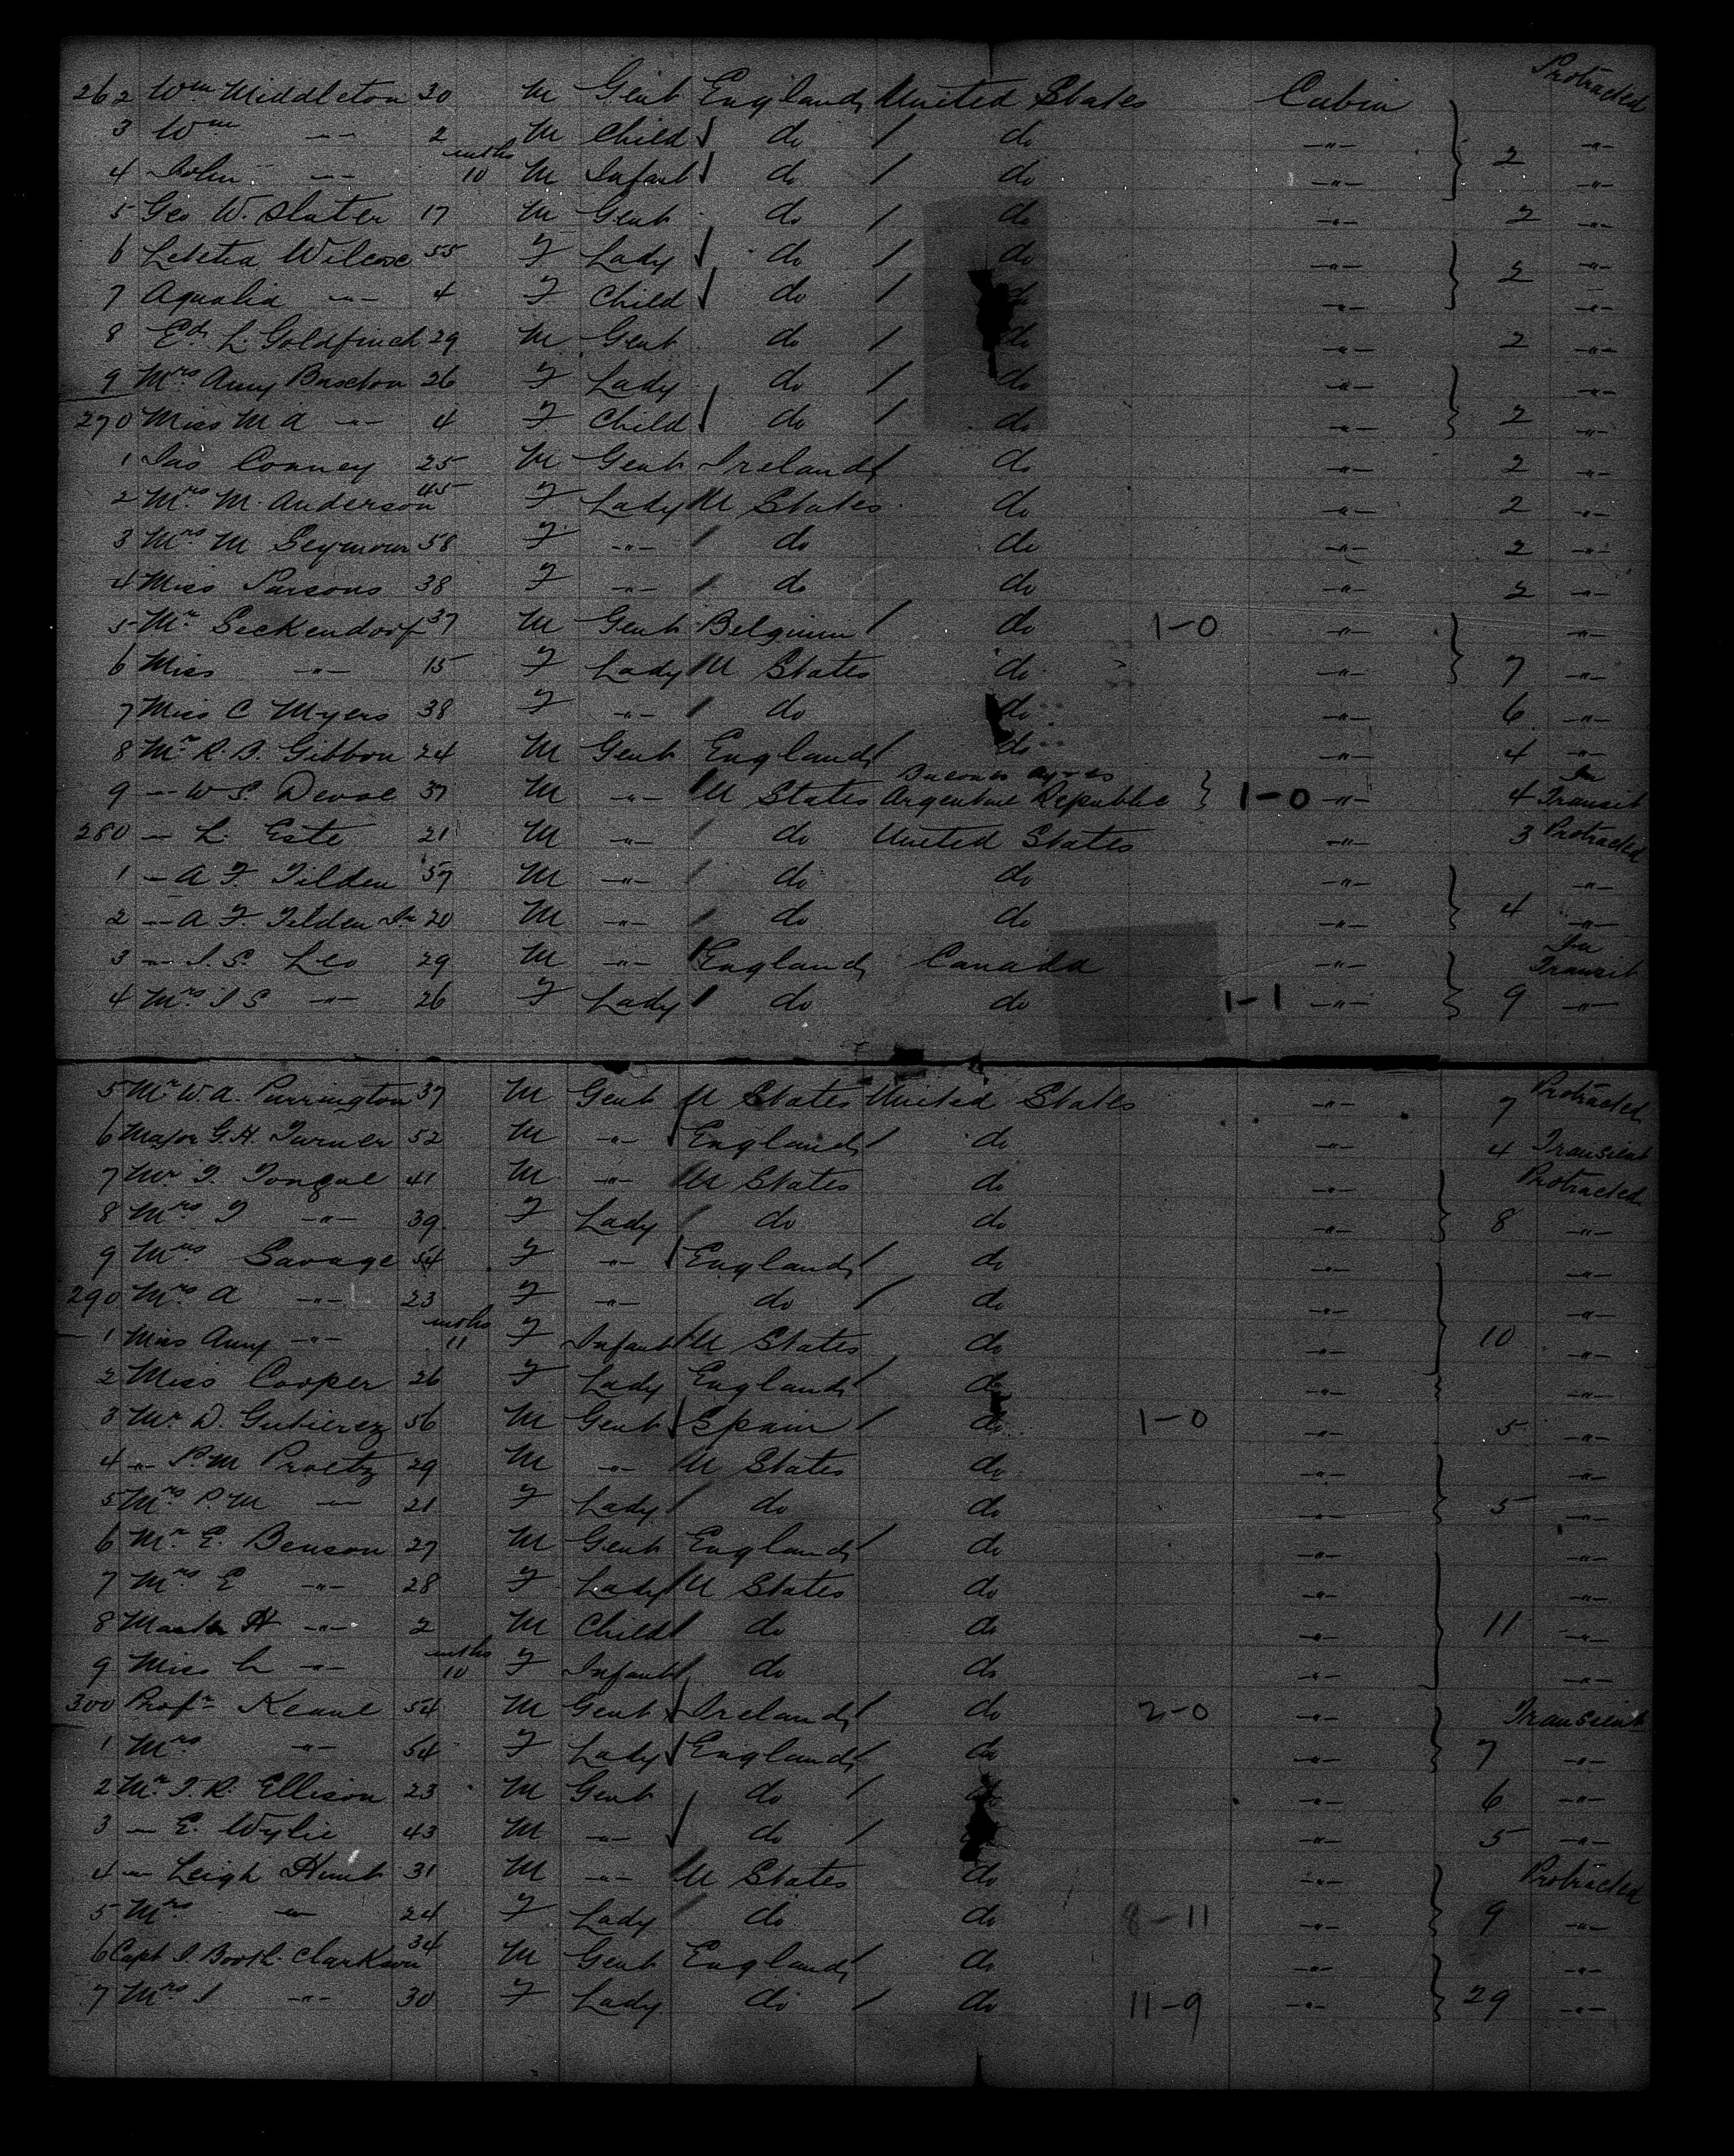 262 Wm Middleton 30 M Gent England United States Cabin Protracted
3 Wm -"- 2 M Child do do -"- -"-
4 John -"- mths 10 M Infant do do -"- 2 -"-
5 Geo W. Slater 17 M Gent do do -"- 2 -"-
6 Letetia Wilcox 55 F Lady do do -"- -"-
7 Aqualia -"- 4 F Child do do -"- 2 -"-
8 Ed. L. Goldfinch 29 M Gent do do -"- 2 -"-
9 Mrs Amy 26 F Lady do do -"- -"-
270 Miss M A -"- 4 F Child do do -"- 2 -"-
1 Jas Conney 25 M Gent Ireland do -"- 2 -"-
2 Mrs M. Anderson 45 F Lady U States do -"- 2 -"-
3 Mrs M Seymour 58 F -"- do do -"- 2 -"-
4 Miss Parsons 38 F -"- do do -"- 2 -"-
5 Mr Seckendorf 37 M Gent Belgium do 1-0 -"- -"-
6 Miss -"- 15 F Lady U States do -"- 7 -"-
7 Miss C Myers 38 F -"- do do -"- 6 -"-
8 Mr R. B. Gibbon 24 M Gent England do -"- 4 -"-
9 -"- W S. Devoe 37 M -"- U States Buenos Ayres Argentine Republic 1-0 -"- 4 In Transit
280 -"- L. Este 21 M -"- do United States -"- 3 Protracted
1 -"- A F. Tilden 57 M -"- do do -"- -"-
2 -"- A F. Tilden Jr 20 M -"- do do -"- 4 -"-
3 -"- J. S. Leo 29 M -"- England Canada -"- In Transit
4 Mrs J S -"- 26 F Lady do do 1-1 -"- 9 -"-
5 Mr W. A. Purrington 37 M Gent U States United States -"- 7 Protracted
6 Major G. H. Turner 52 M -"- England do -"- 4 Transient
7 Mr T. Tongue 41 M -"- U States do -"- Protracted
8 Mrs T -"- 39 F Lady do do -"- 8 -"-
9 Mrs Savage 54 F -"- England do -"- -"-
290 Mrs A -"- 23 F -"- do do -"- -"-
1 Miss Amy -"- mths 11 F Infant U States do -"- 10 -"-
2 Miss Cooper 26 F Lady England do -"- -"-
3 Mr D. Gutierez 56 M Gent Spain do 1-0 -"- 5 -"-
4 -"- P. M Praetz 29 M -"- U States do -"- -"-
5 Mrs P. M -"- 21 F Lady do do -"- 5 -"-
6 Mr E. Benson 27 M Gent England do -"- -"-
7 Mrs E -"- 28 F Lady U States do -"- -"-
8 Master H -"- 2 M Child do do -"- 11 -"-
9 Miss L -"- mths 10 F Infant do do -"- -"-
300 Profr Keane 54 M Gent Ireland do 2-0 -"- Transient
1 Mrs -"- 54 F Lady England do -"- 7 -"-
2 Mr J. R. Ellison 23 M Gent do do -"- 6 -"-
3 -"- E. Wylie 43 M -"- do do -"- 5 -"-
4 -"- Leigh Hunt 31 M -"- U States do -"- Protracted
5 Mrs -"- 24 F Lady do do 8-11 -"- 9 -"-
6 Capt J. Booth Clarkson 34 M Gent England do -"- -"-
7 Mrs J -"- 30 F Lady do do 11-9 -"- 29 -"-